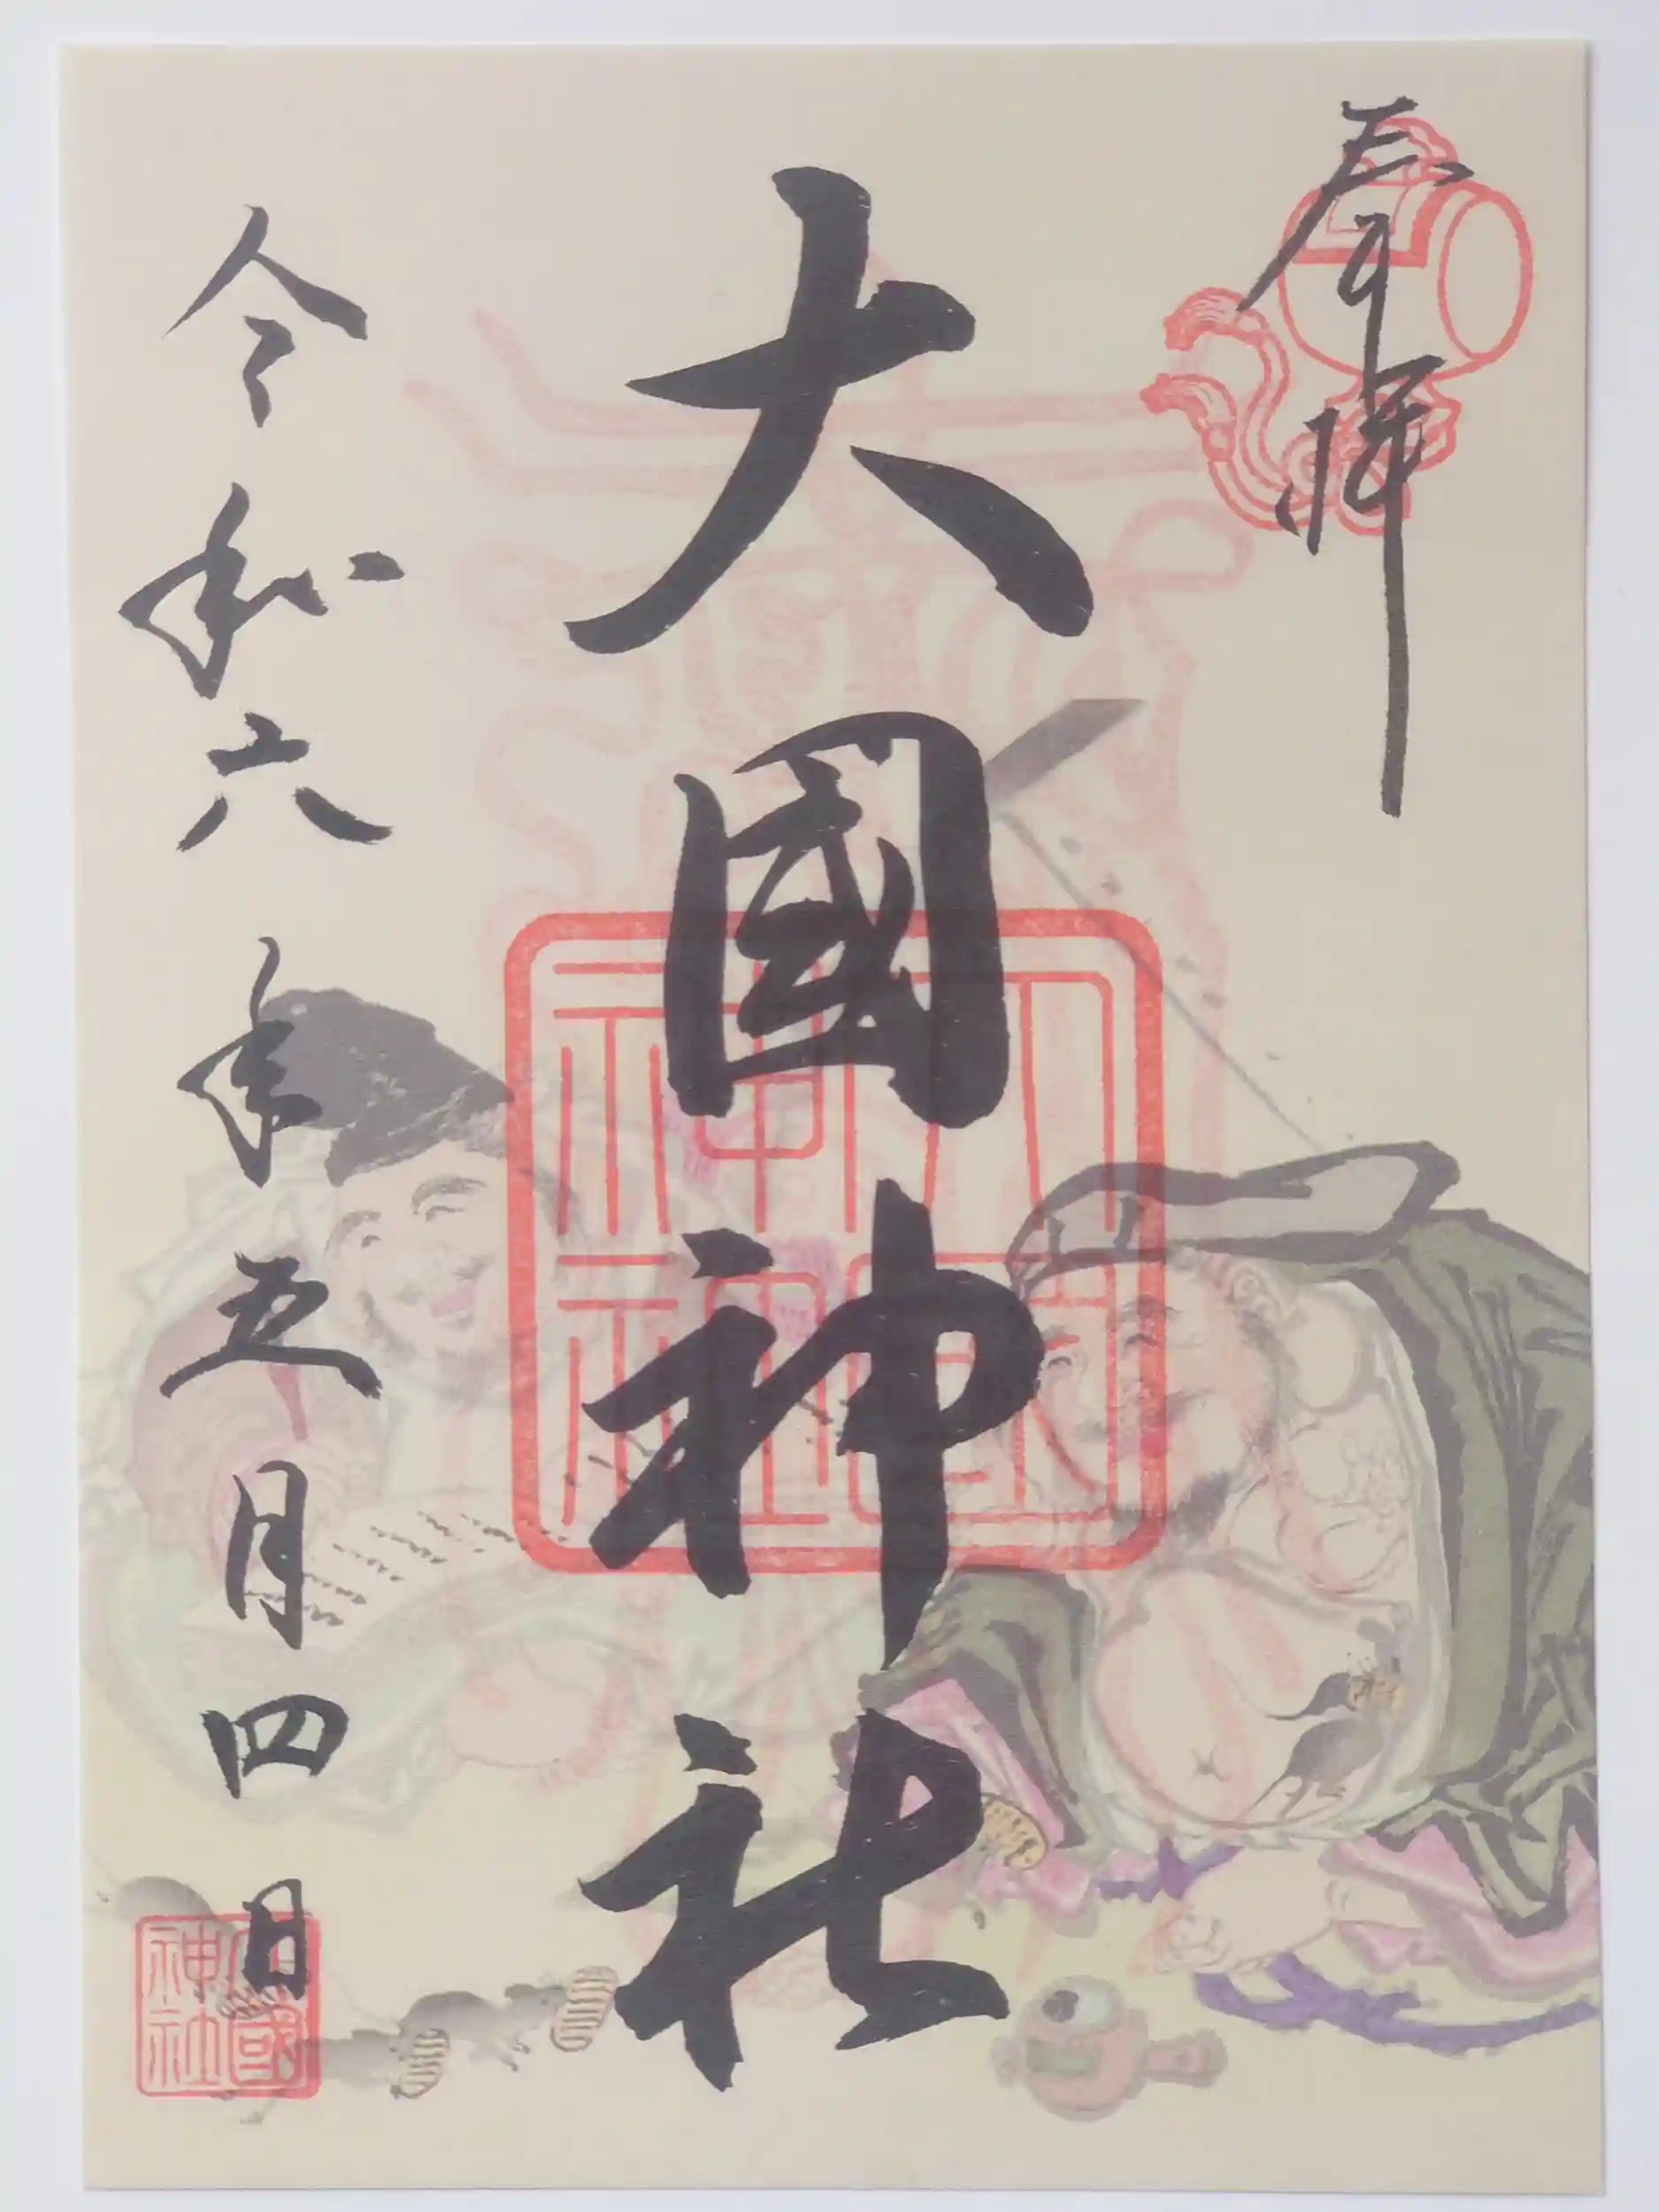 奉拝
大國神社
令和六年五月四日
大國神社
大國神社